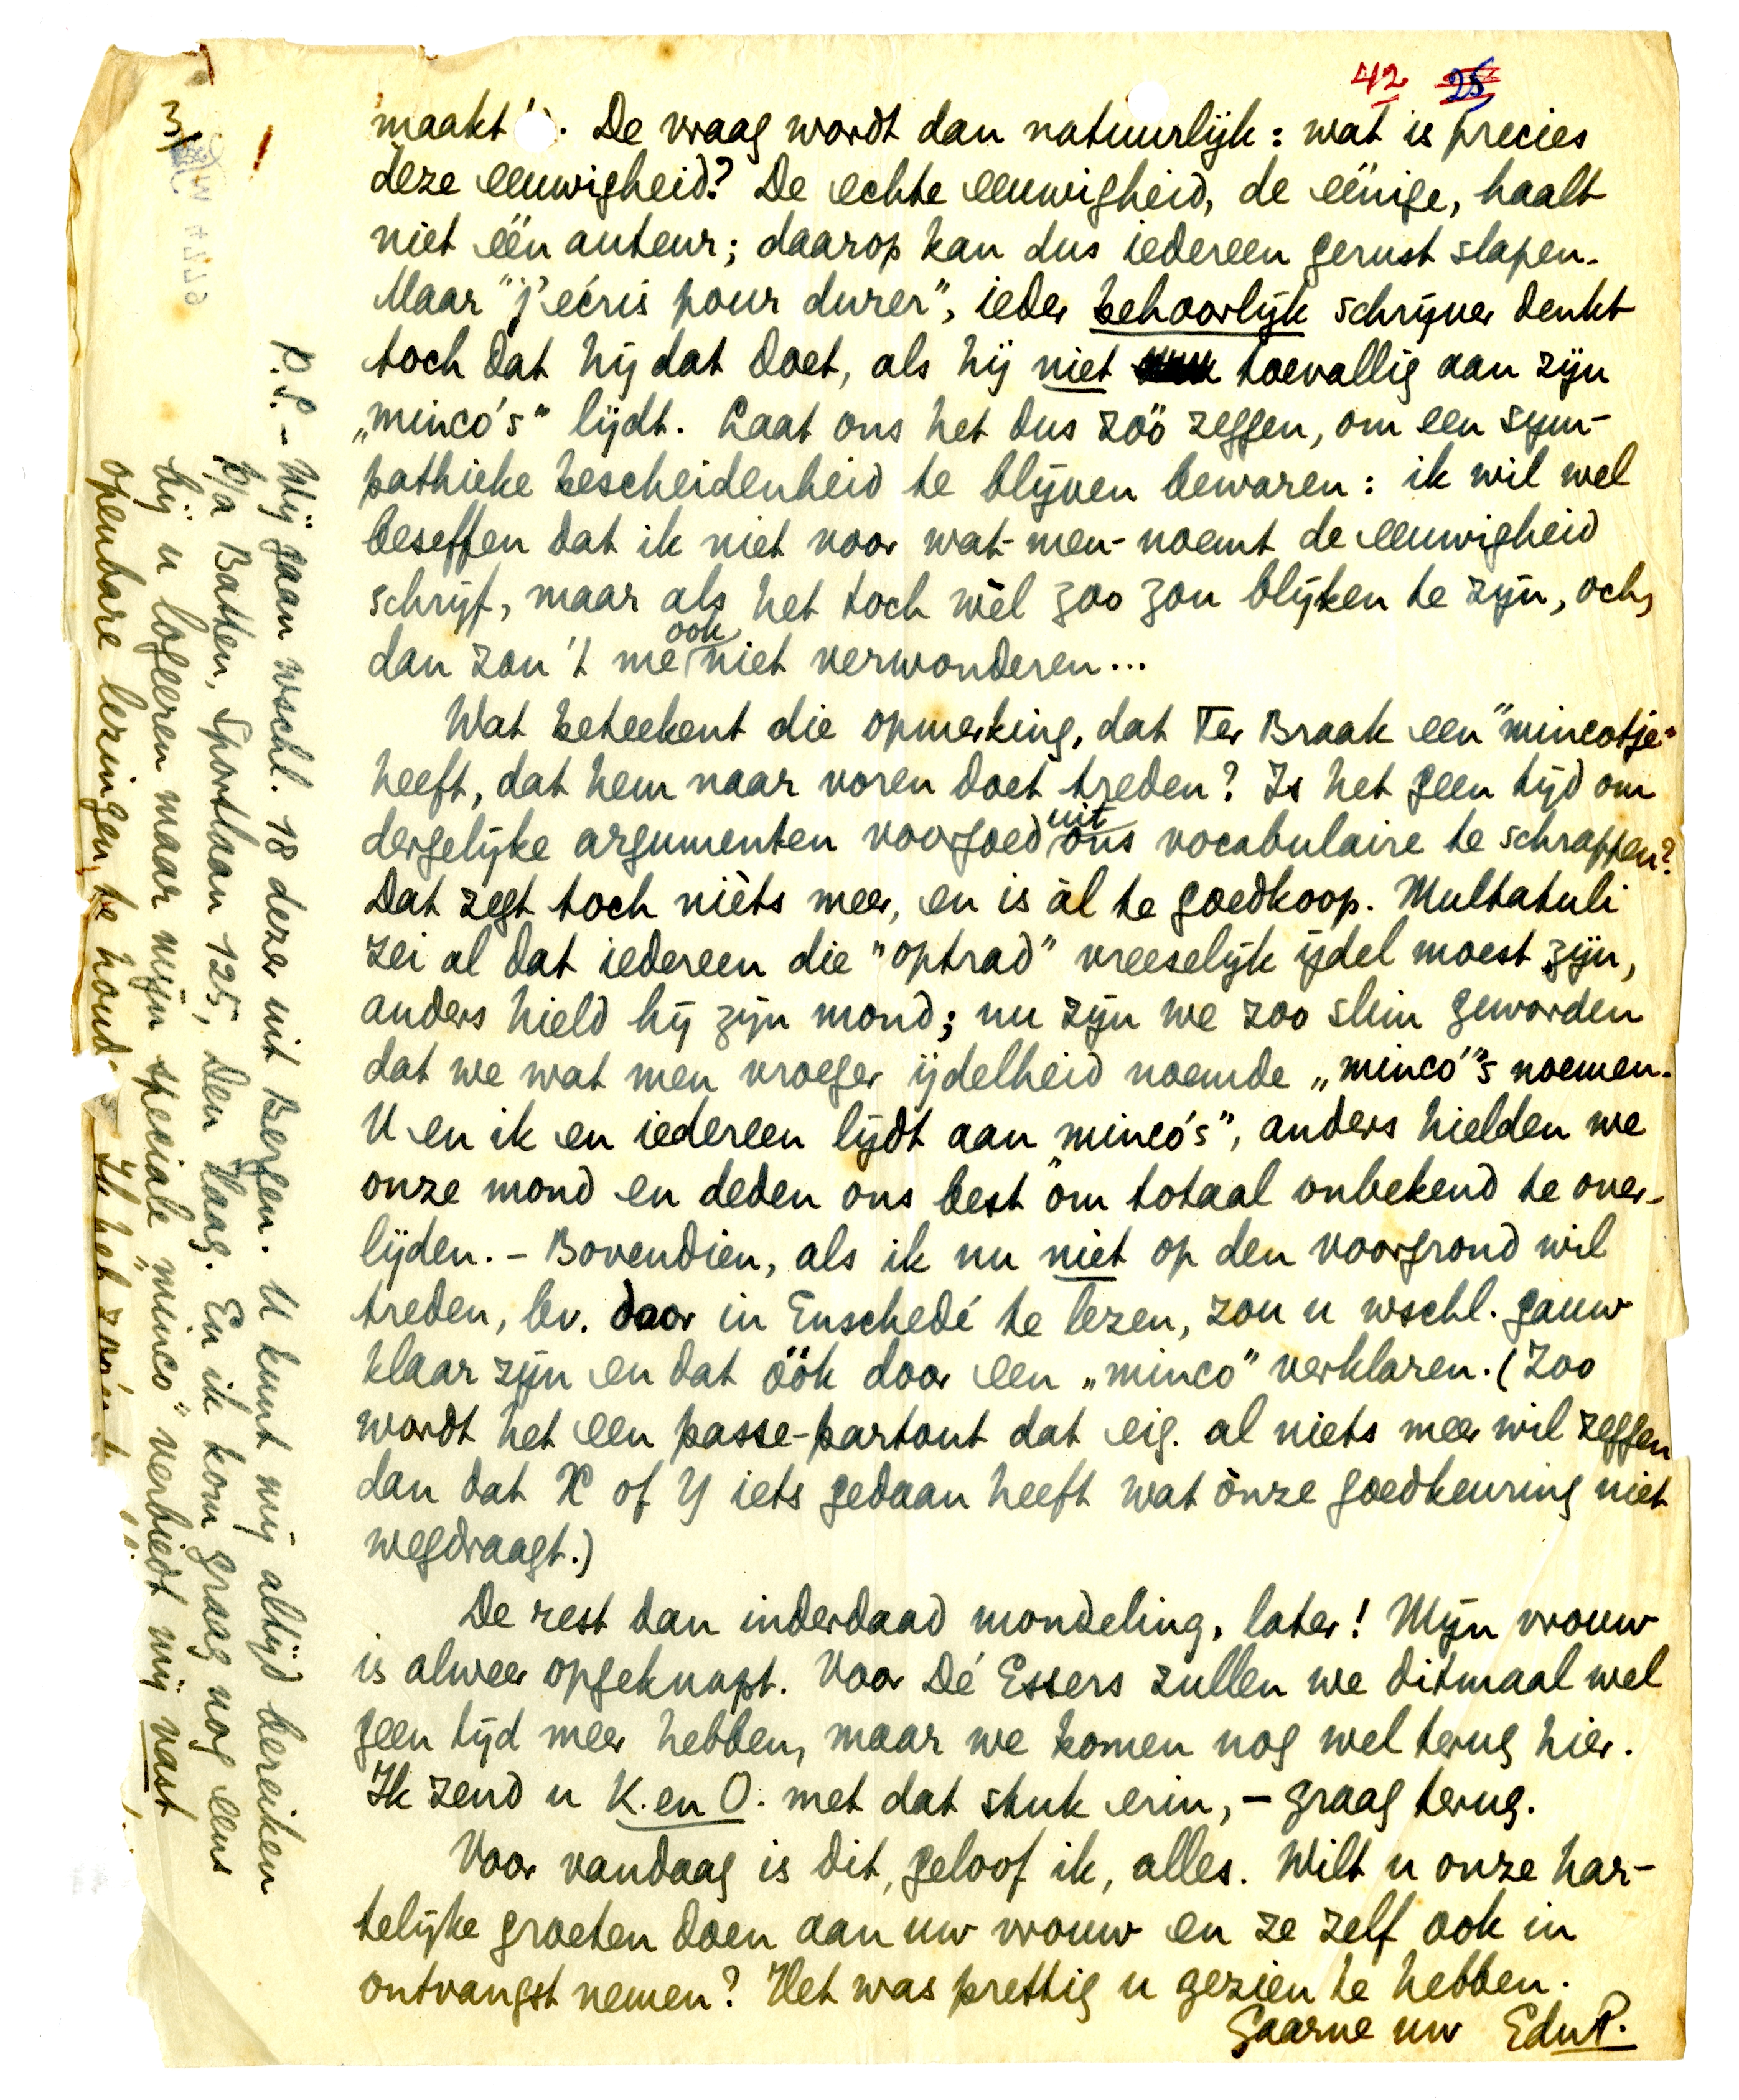 42 25
maakt"). De vraag wordt dan natuurlijk: wat is precies
deze eeuwigheid? De echte eeuwigheid, de eënige, haalt
niet één auteur; daarop kan dus iedereen gerust slapen.
Maar "j'écris pour durer", ieder behoorlijk schrijver denkt
toch dat hij dat doet, als hij niet toevallig aan zijn
„minco's" lijdt. Laat ons het dus zóó zeggen, om een sym-
pathieke bescheidenheid te blijven bewaren: ik wil wel
beseffen dat ik niet voor wat-men-noemt de eeuwigheid
schrijf, maar als het toch wèl zoo zou blijken te zijn, och,
dan zou 't me ook niet verwonderen...
Wat beteekent die opmerking, dat Ter Braak een "mincotje"
heeft, dat hem naar voren doet treden? Is het geen tijd om
dergelijke argumenten voorgoed uit ons vocabulaire te schrappen?
Dat zegt toch nièts meer, en is àl te goedkoop. Multatuli
zei al dat iedereen die "optrad" vreeselijk ijdel moest zijn,
anders hield hij zijn mond; nu zijn we zoo slim geworden
dat we wat men vroeger ijdelheid noemde „minco"'s noemen.
U en ik en iedereen lijdt aan "minco's", anders hielden we
onze mond en deden ons best om totaal onbekend te over-
lijden. – Bovendien, als ik nu niet op den voorgrond wil
treden, bv. door in Enschedé te lezen, zou u wschl. gauw
klaar zijn en dat óók door een „minco" verklaren. (Zoo
wordt het een passe-partout dat eig. al niets meer wil zeggen
dan dat X of Y iets gedaan heeft wat ònze goedkeuring niet
wegdraagt.)
De rest dan inderdaad mondeling, later! Mijn vrouw
is alweer opgeknapt. Voor Dé Essers zullen we ditmaal wel
geen tijd meer hebben, maar we komen nog wel terug hier.
Ik zend u K. en O. met dat stuk erin, – graag terug.
Voor vandaag is dit, geloof ik, alles. Wilt u onze har-
telijke groeten doen aan uw vrouw en ze zelf ook in
ontvangst nemen? Het was prettig u gezien te hebben.
Gaarne uw EduP.
P.S. – Wij gaan wschl. 18 dezer uit Bergen. U kunt mij altijd bereiken
p/a Batten, Sportlaan 125, Den Haag. En ik kom graag nog eens
bij u logeeren maar mijn speciale "minco" verbiedt mij vast
openbare lezingen te houd. Ik heb